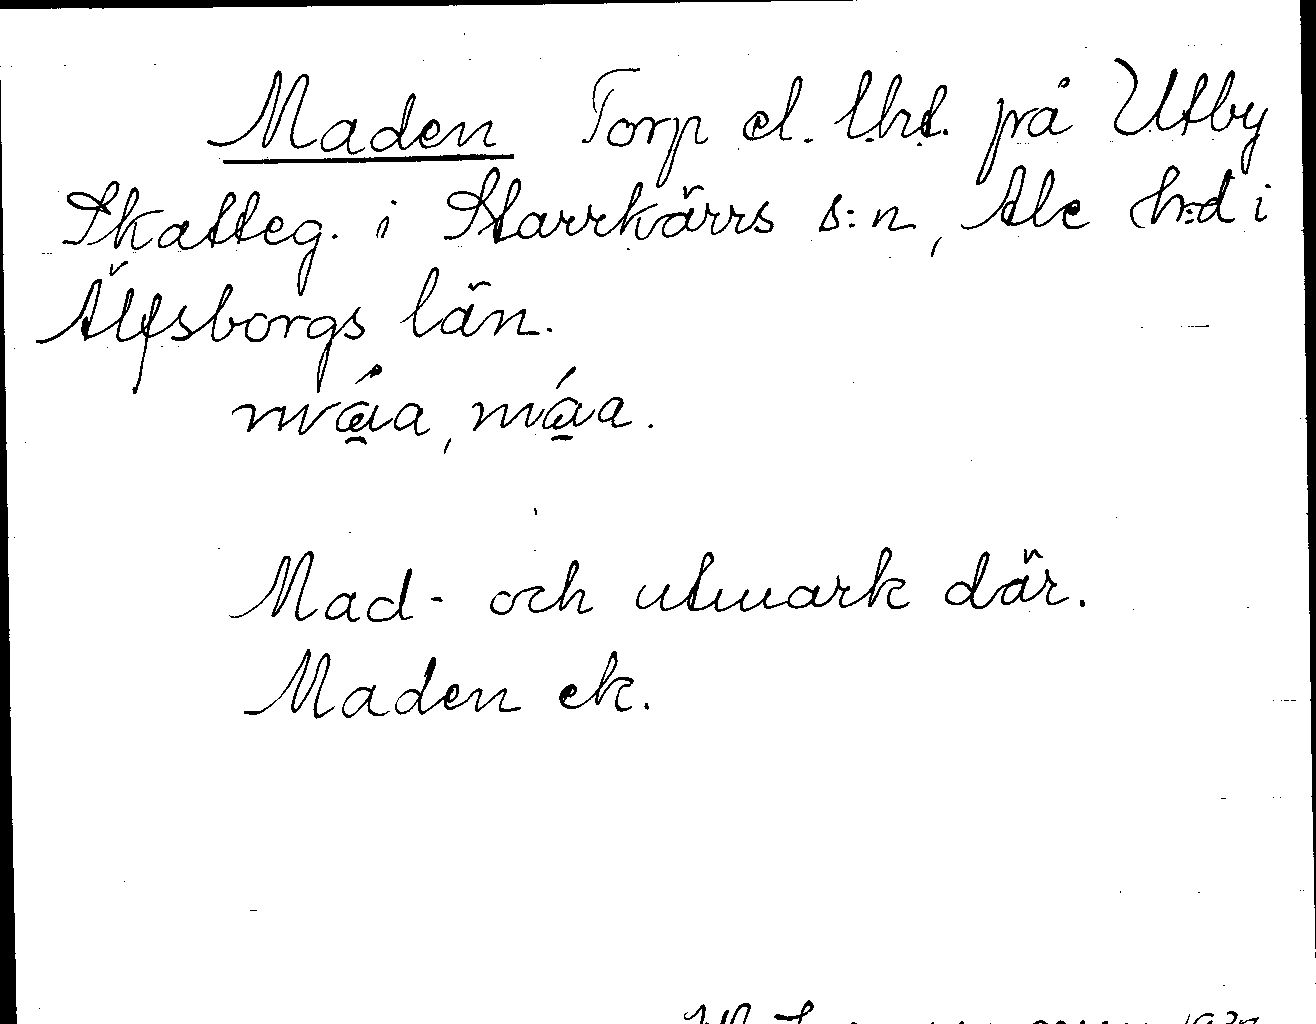 Maden Torp el. lht. på Utby
Skatteg. i Starrkärrs s:n, Ale h:d i
Älfsborgs län.
Mad- och utmark där.
Maden ek.